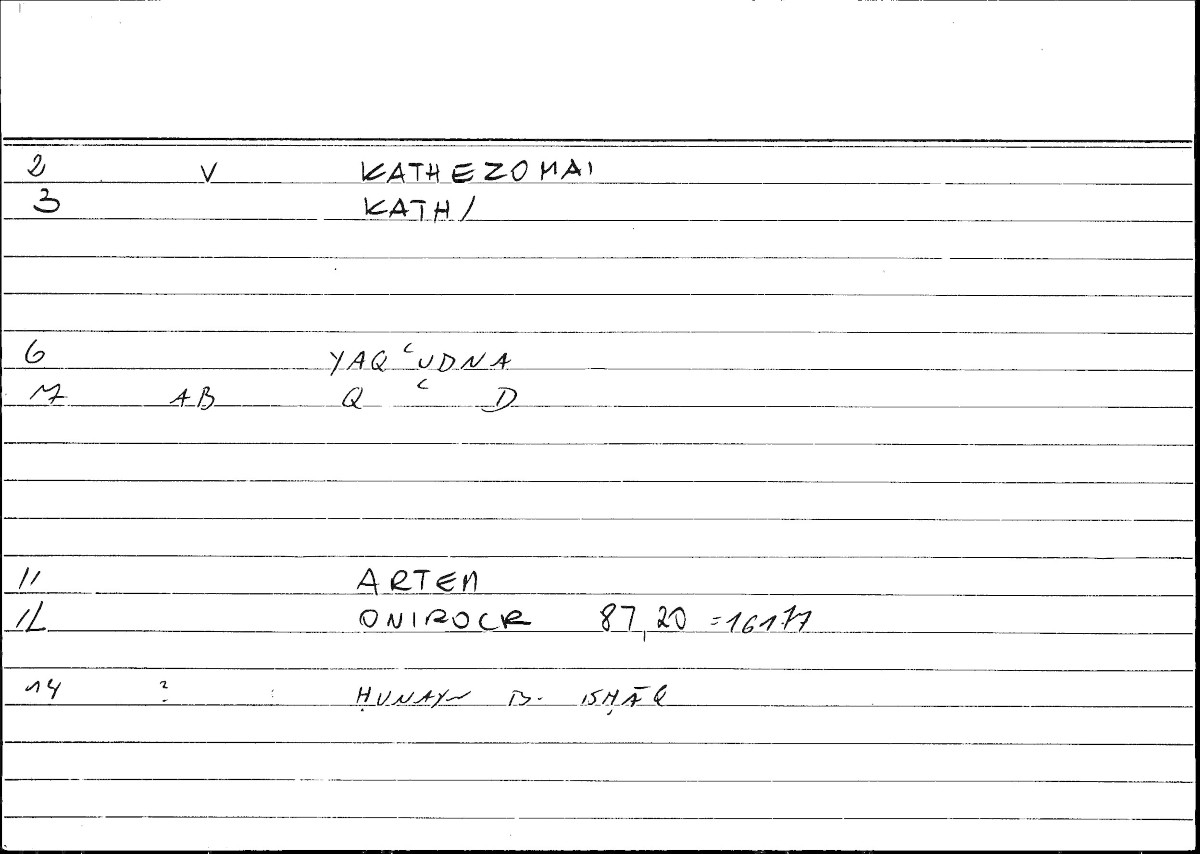 2 V KATHEZOMAI
3 KATH/
6 YAQʿUDNA
17 AB Q ʿ D
11 ARTEM
12 ONIROCR 87,20 =16177
14 ? : ḤUNAYN B. ISḤĀQ